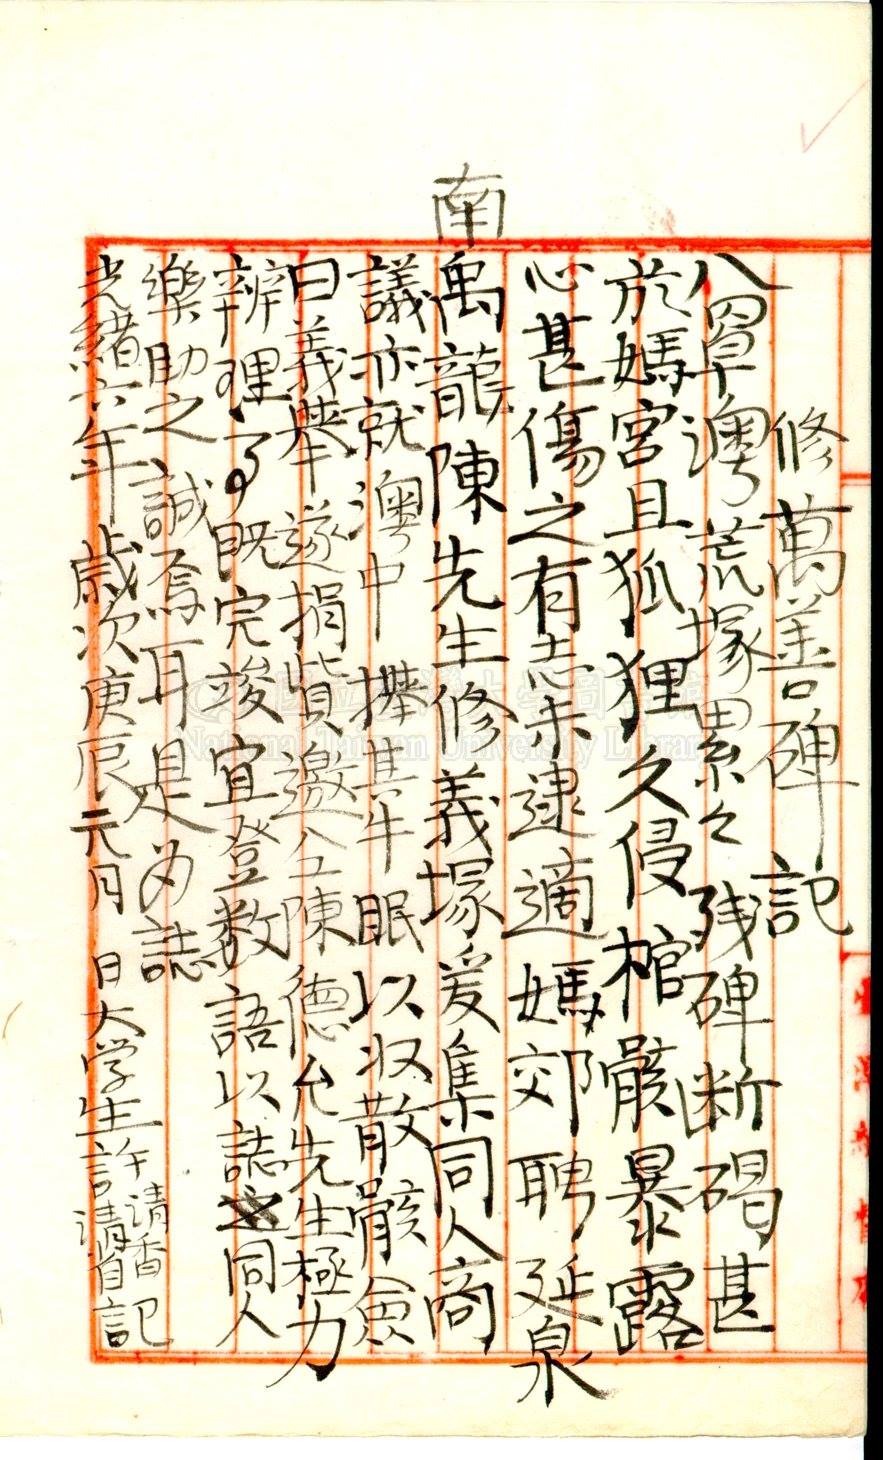 修萬善碑記
八罩澳荒塚累々残碑断碣甚
於媽宮且狐狸久侵棺骸暴露
心甚傷之有志未逮適媽郊聘延泉
南
禹龍陳先生修義塚爰集同人商
議亦就澳中擇其牛眠以收散骸僉
曰義举遂捐貲邀仝陳德允先生極力
辨理了既完竣宜登数語以誌之同人
樂助之誠焉耳是为誌
光緒六年歲次庚辰元月 日大学生許清香記
National Taiwan University Library